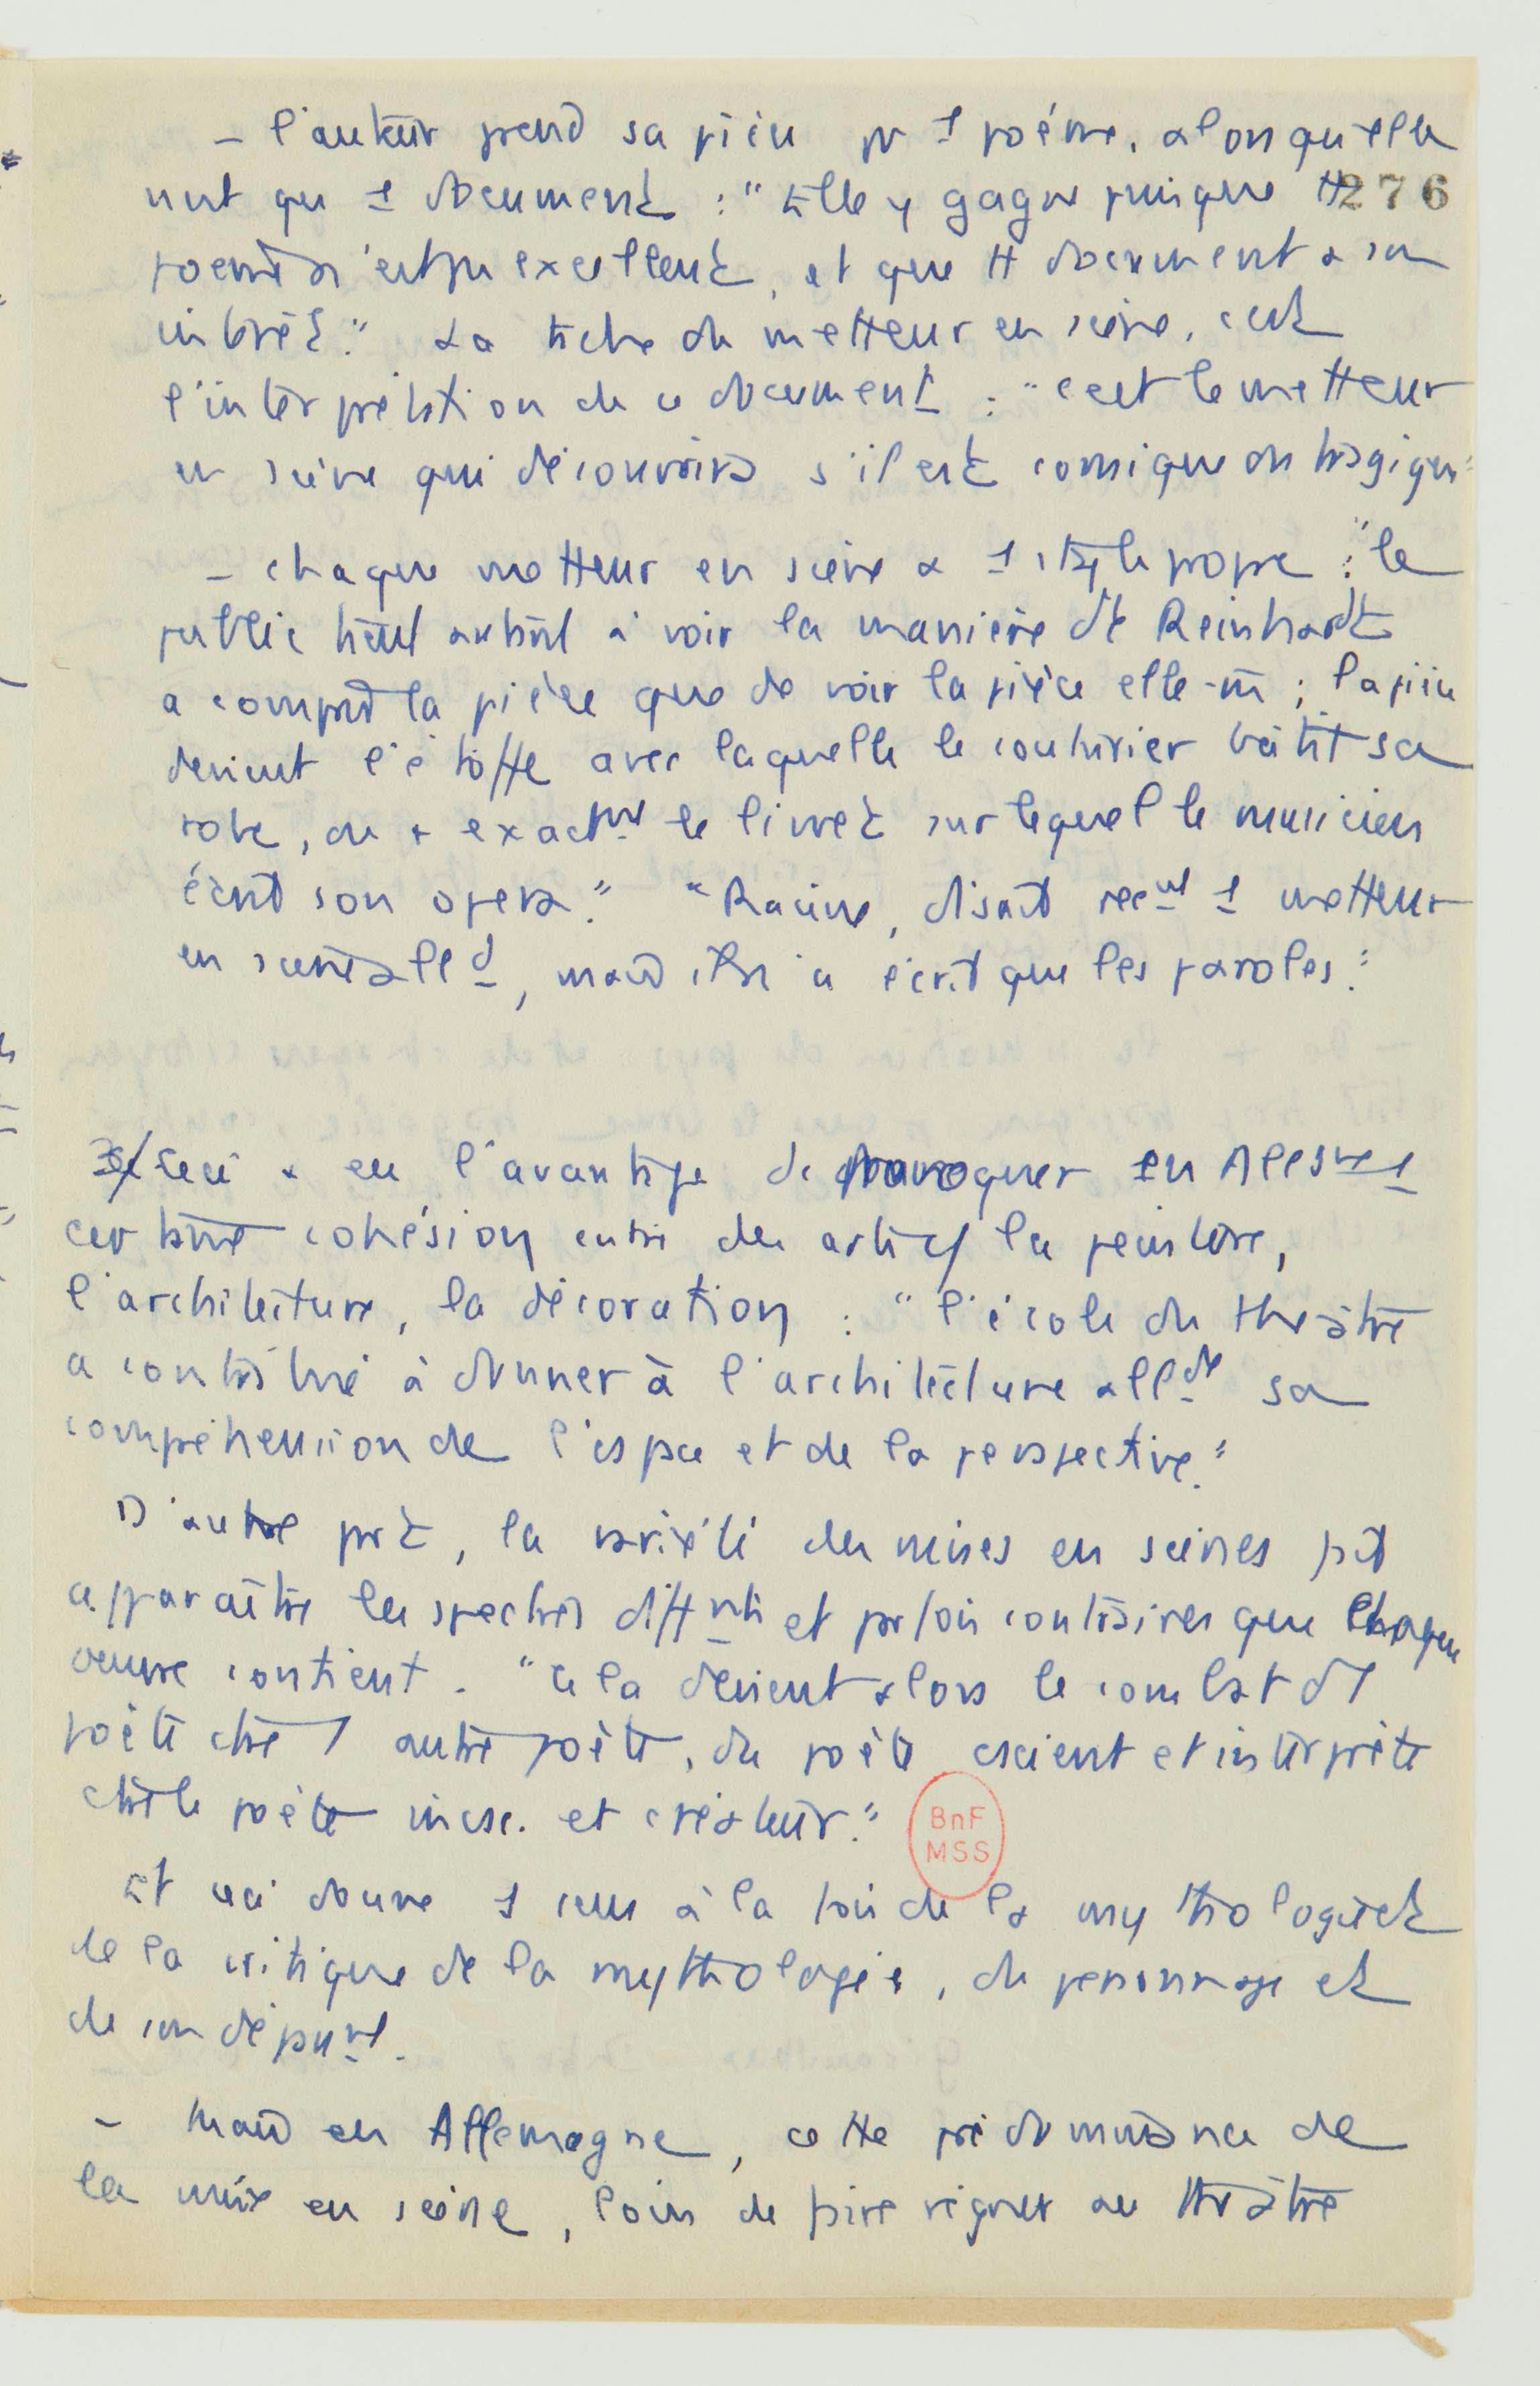 - l'auteur prend sa pièce pr 1 poème, alors qu'elle
n'est que 1 document : "Elle y gagne puisque tt 276
poème n'est pas excellent, et que tt document a son
intérêt." La tâche du metteur en scène, c'est
l'interprétation de ce document : "c'est le metteur
en scène qui découvrira s'il est comique ou tragique"
- chaque metteur en scène a 1 style propre : "le
public tient autant à voir la manière dt Reinhardt
a compris la pièce que de voir la pièce elle-m̄ ; la pièce
devient l'étoffe avec laquelle le couturier bâtit sa
robe, ou + exactmt le livret sur lequel le musicien
écrit son opéra." "Racine, disait récmt 1 metteur
en scène alld, mais il n'a écrit que les paroles."
3/ Ceci a eu l'avantage de provoquer en Allgne 1
certaine cohésion entre des arts cf la peinture,
l'architecture, la décoration : "l'école du théâtre
a contribué à donner à l'architecture allde sa
compréhension de l'espace et de la perspective."
D'autre part, la variété des mises en scènes fait
apparaître les spectres difftnts et parfois contraires que chaque
oeuvre contient. "Cela devient alors le combat d'1
poète ctre 1 autre poète, du poète cscient et interprète
ctre le poète incsc. et créateur."
BnF
MSS
Et ceci donne 1 sens à la fois de la mythologie et
de la critique de la mythologie, du personnage et
de son dépmt.
- Mais en Allemagne, cette prédominance de
la mise en scène, loin de faire régner au théâtre